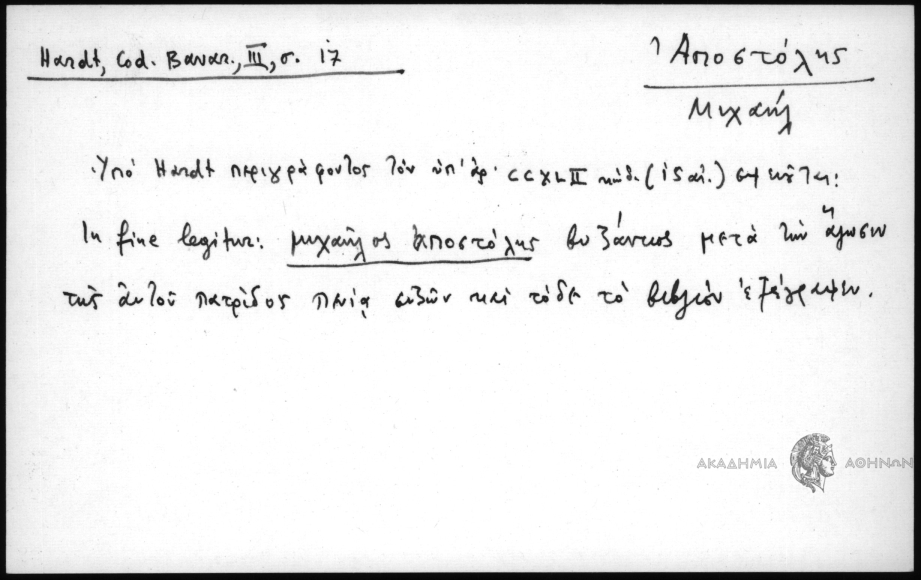 Hardt, Cod. Bavar., III, σ. 17
Ἀποστόλης
Μιχαήλ
Ὑπό Hardt περιγράφοντος τόν ὑπ' ἀρ. CCXLII κώδ. (ις αἰ.) σημειοῦται:
In fine legitur: μιχαῆλος ἀποστόλης βυζάντιος μετά τήν ἅλωσιν
τῆς ἑαυτοῦ πατρίδος πενίᾳ συζῶν καί τόδε τό βιβλίον ἐξέγραψεν.
ΑΚΑΔΗΜΙΑ ΑΘΗΝΩΝ